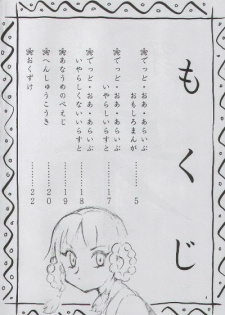 もくじ
❀でっど・おあ・あらいぶ
おもしろまんが………5
❀でっど・おあ・あらいぶ
いやらしいいらすと………17
❀でっど・おあ・あらいぶ
いやらしくないいらすと………18
❀あなうめのぺえじ………19
❀へんしゅうこうき………20
❀おくずけ………22